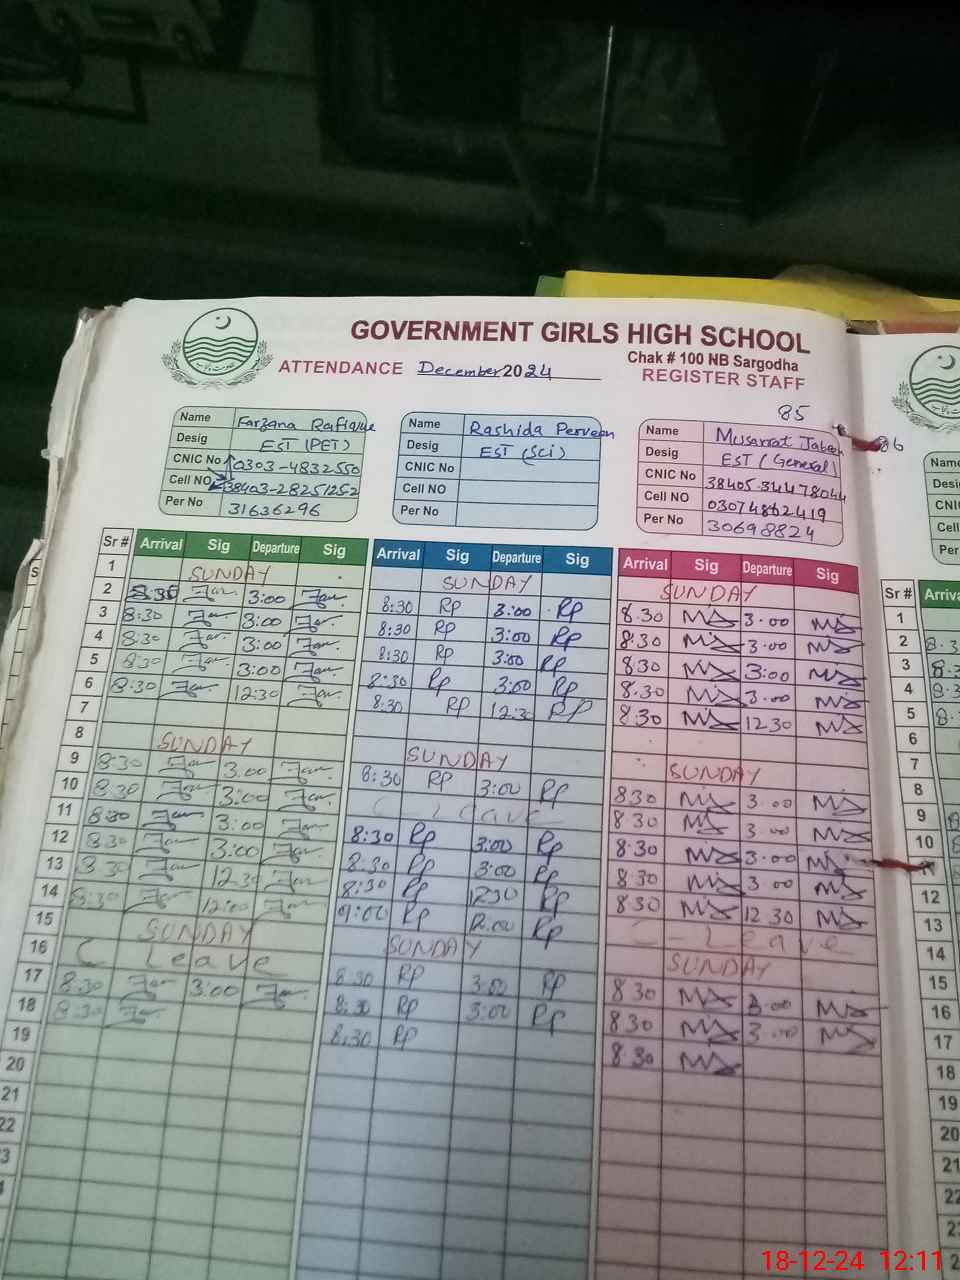 GOVERNMENT GIRLS HIGH SCHOOL
Chak # 100 NB Sargodha
ATTENDANCE December 2024
REGISTER STAFF
85
86
Name Farzana Rafique
Desig EST (PET)
CNIC No 0303-4832550
Cell NO 38403-28251252
Per No 31636296
Name Rashida Perveen
Desig EST (Sci)
CNIC No
Cell NO
Per No
Name Musarrat Jabeen
Desig EST (General)
CNIC No 38405 34478044
Cell NO 03074862419
Per No 30698824
Name
Desig
CNIC
Cell
Per N
Sr # Arrival Sig Departure Sig Arrival Sig Departure Sig Arrival Sig Departure Sig Sr # Arriva
1 SUNDAY SUNDAY SUNDAY 1
2 8:30 3:00 8:30 RP 3:00 RP 8.30 3.00 2
3 8:30 3:00 8:30 RP 3:00 RP 8.30 3.00 3
4 8:30 3:00 8:30 RP 3:00 RP 8.30 3.00 4
5 8:30 3:00 8:30 RP 3:00 RP 8.30 3.00 5
6 8:30 12:30 8:30 RP 12:30 RP 8.30 12.30 6
7 7
8 SUNDAY SUNDAY SUNDAY 8
9 8:30 3:00 8:30 RP 3:00 RP 830 3.00 9
10 8:30 3:00 C Leave 8 30 3 00 10
11 8:30 3:00 8:30 RP 3:00 RP 8.30 3.00
12 8:30 3:00 8:30 RP 3:00 RP 8 30 3 00 12
13 8:30 12:30 8:30 RP 1230 RP 8 30 12 30 13
14 8:30 12:00 9:00 RP 12:00 RP C-Leave 14
15 SUNDAY SUNDAY SUNDAY 15
16 C Leave 8:30 RP 3:00 RP 8 30 3.00 16
17 8:30 3:00 8:30 RP 3:00 RP 8 30 3.00 17
18 8:30 8:30 RP 8.30 18
19 19
20 20
21 21
22 22
18-12-24 12:11